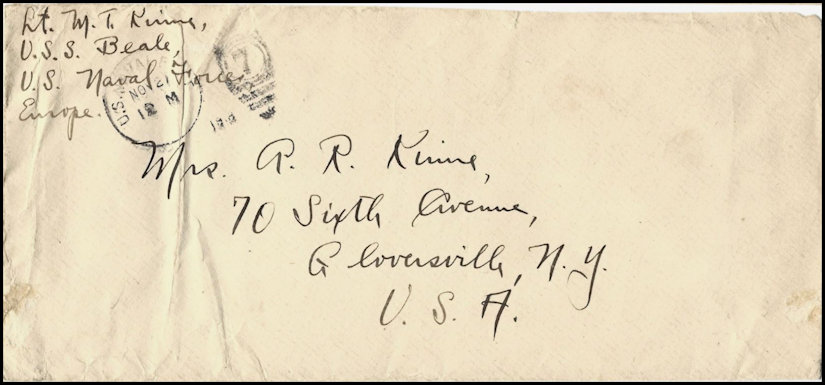 Lt. M. T. Kinne,
U.S.S. Beale,
U.S. Naval Forces
Europe.
U.S.
NOV 21
12 M
7
Mrs. A. R. Kinne,
70 Sixth Avenue,
Gloversville, N.Y.
U. S. A.